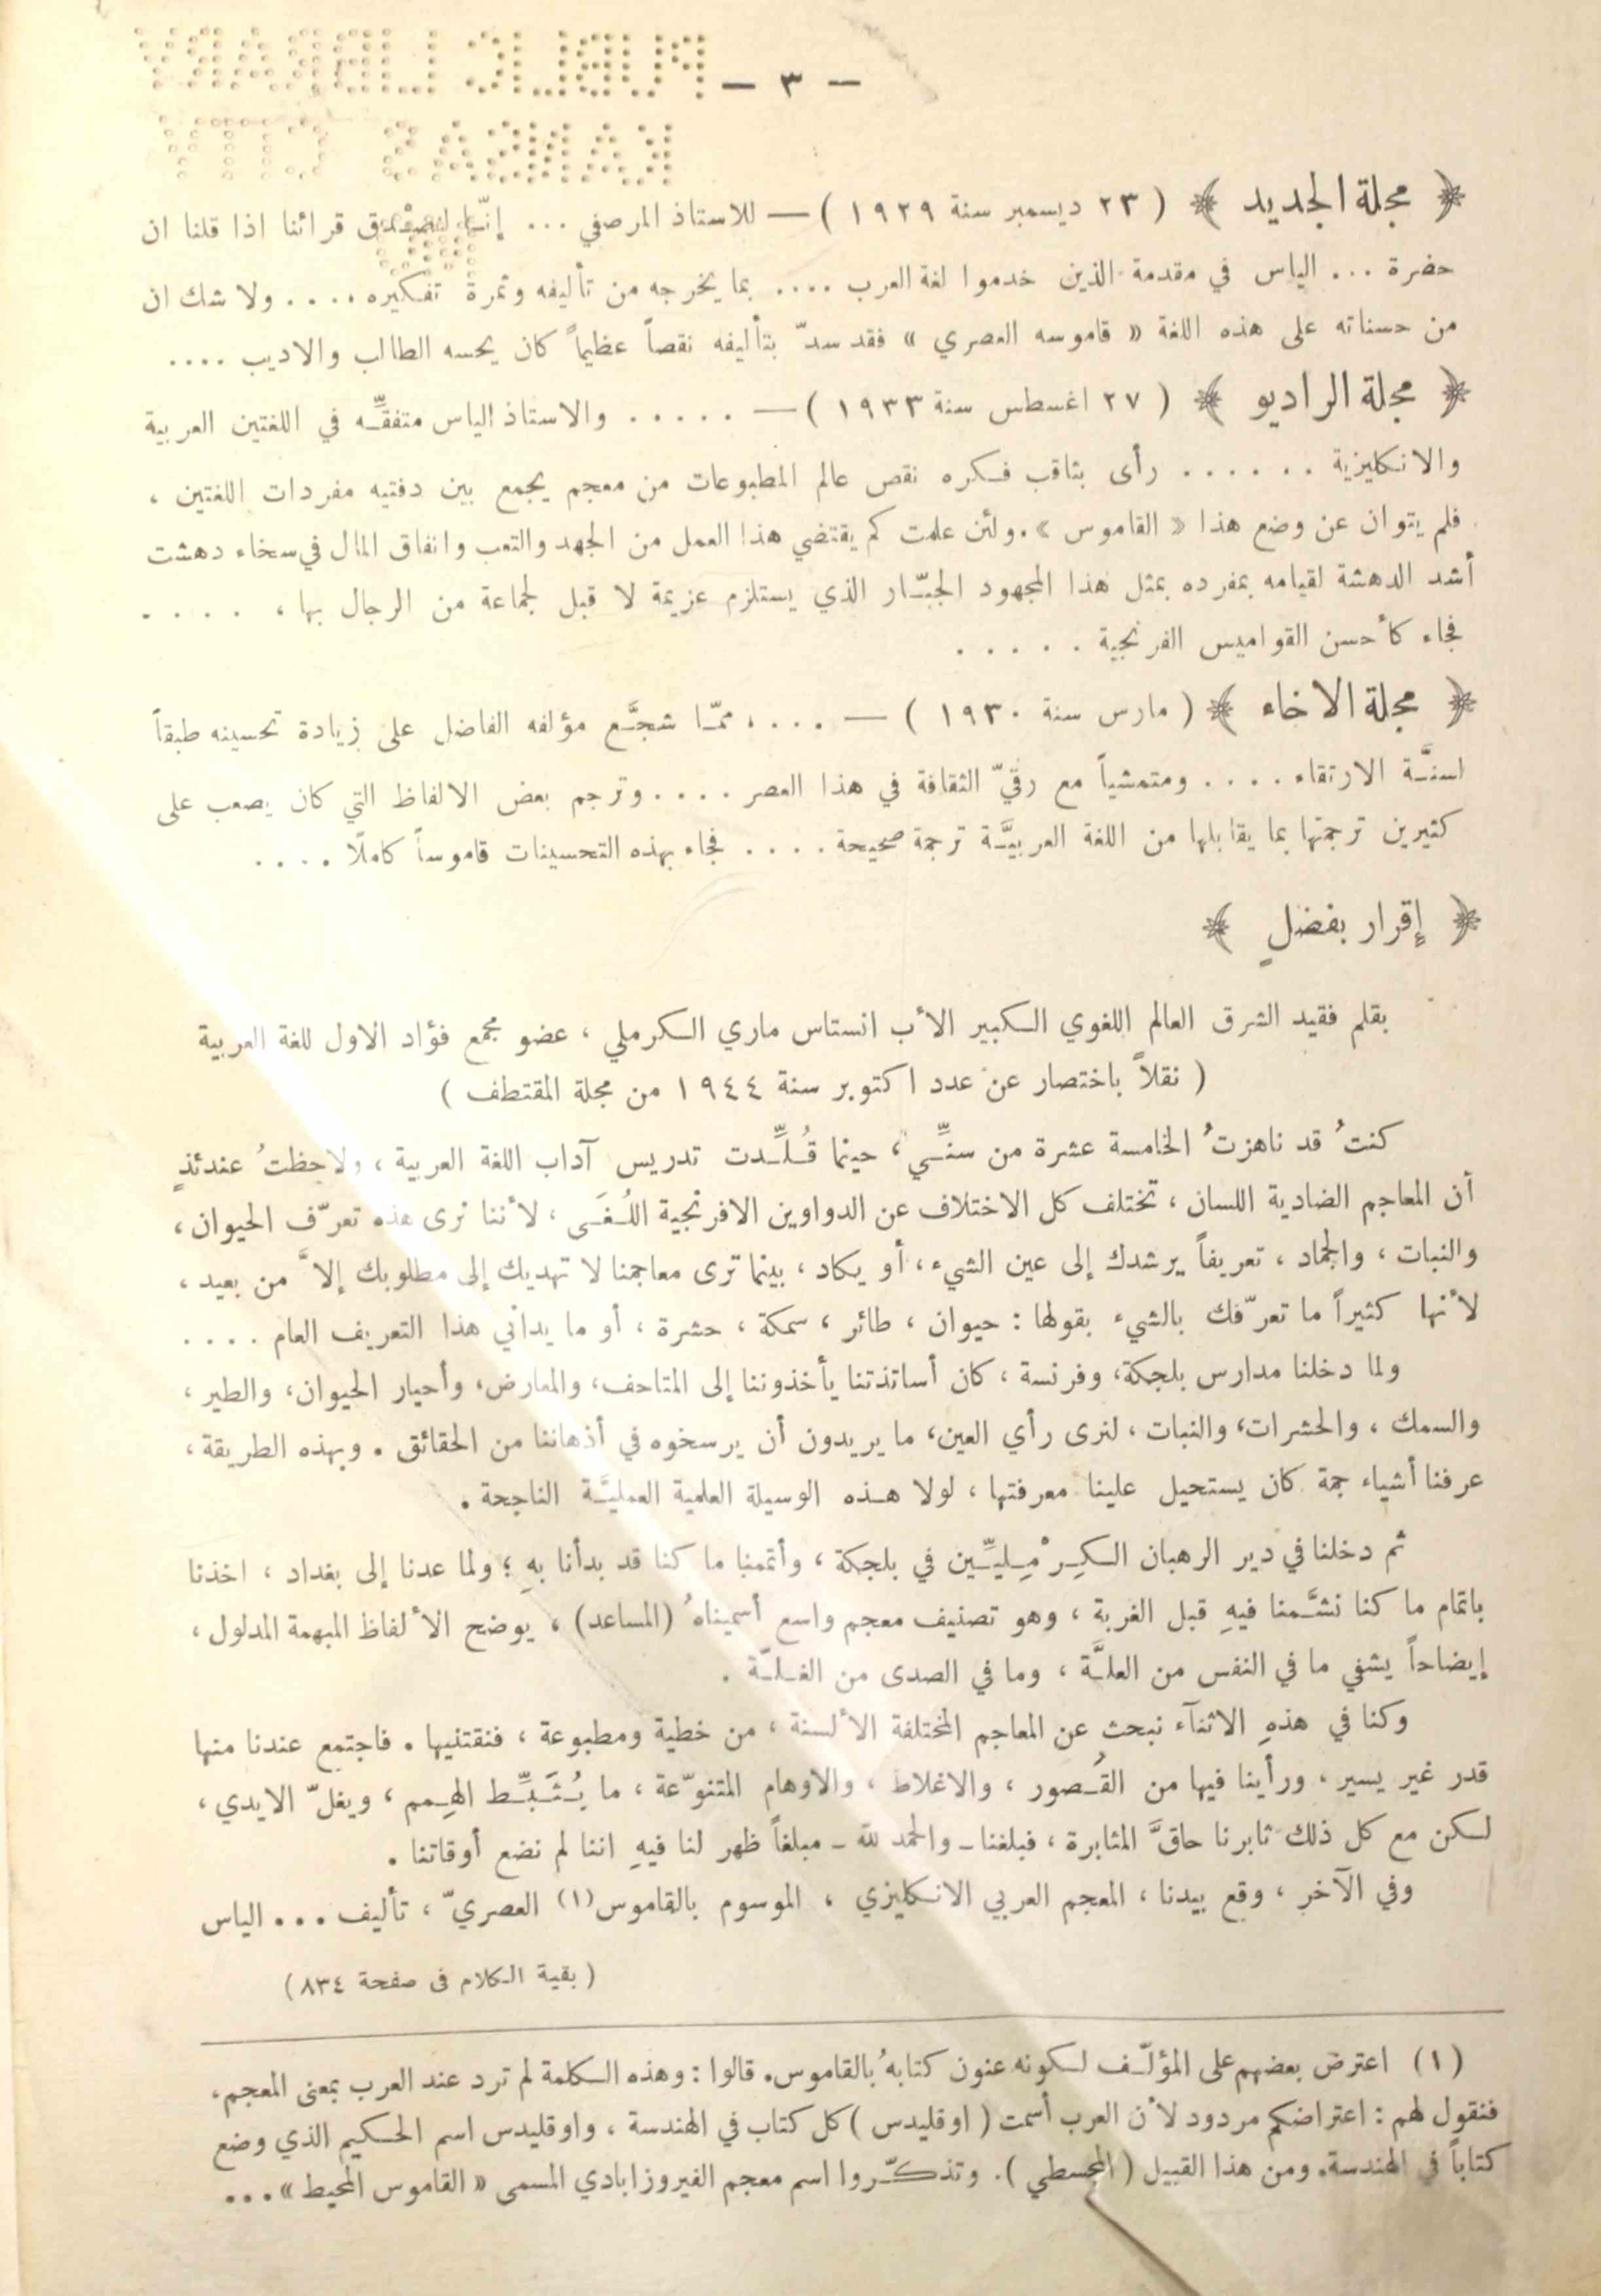 PUBLIC LIBRARY
KANSAS CITY
— ٣ —
﴿ مجلة الجديد ﴾ ( ٢٣ ديسمبر سنة ١٩٢٩ ) — للاستاذ المرصفي ... إنّنا لنصْدق قرائنا اذا قلنا ان
حضرة ... الياس في مقدمة الذين خدموا لغة العرب .... بما يخرجه من تأليفه وثمرة تفكيره .... ولا شك ان
من حسناته على هذه اللغة « قاموسه العصري » فقد سدّ بتأليفه نقصاً عظيماً كان يحسه الطالب والاديب ....
﴿ مجلة الراديو ﴾ ( ٢٧ اغسطس سنة ١٩٣٣ ) — ..... والاستاذ الياس متفقّه في اللغتين العربية
والانكليزية ...... رأى بثاقب فكره نقص عالم المطبوعات من معجم يجمع بين دفتيه مفردات اللغتين ،
فلم يتوان عن وضع هذا « القاموس ». ولئن علمت كم يقتضي هذا العمل من الجهد والتعب وانفاق المال في سخاء دهشت
أشد الدهشة لقيامه بمفرده بمثل هذا المجهود الجبّار الذي يستلزم عزيمة لا قبل لجماعة من الرجال بها ، ....
فجاء كأحسن القواميس الفرنجية .....
﴿ مجلة الاخاء ﴾ ( مارس سنة ١٩٣٠ ) — .... ، ممّا شجَّع مؤلفه الفاضل على زيادة تحسينه طبقاً
لسنَّة الارتقاء .... ومتمشياً مع رقيّ الثقافة في هذا العصر .... وترجم بعض الالفاظ التي كان يصعب على
كثيرين ترجمتها بما يقابلها من اللغة العربيَّة ترجمة صحيحة .... فجاء بهذه التحسينات قاموساً كاملًا ....
﴿ إقرار بفضلٍ ﴾
بقلم فقيد الشرق العالم اللغوي الكبير الأب انستاس ماري الكرملي ، عضو مجمع فؤاد الاول للغة العربية
( نقلاً باختصار عن عدد اكتوبر سنة ١٩٤٤ من مجلة المقتطف )
كنتُ قد ناهزتُ الخامسة عشرة من سنِّي ، حينما قُلِّدت تدريس آداب اللغة العربية ، ولاحظتُ عندئذٍ
أن المعاجم الضادية اللسان ، تختلف كل الاختلاف عن الدواوين الافرنجية اللُغَى ، لأننا نرى هذه تعرّف الحيوان ،
والنبات ، والجماد ، تعريفاً يرشدك إلى عين الشيء ، أو يكاد ، بينما ترى معاجمنا لا تهديك إلى مطلوبك إلاَّ من بعيد ،
لأنها كثيراً ما تعرّفك بالشيء بقولها : حيوان ، طائر ، سمكة ، حشرة ، أو ما يداني هذا التعريف العام ....
ولما دخلنا مدارس بلجكة ، وفرنسة ، كان أساتذتنا يأخذوننا إلى المتاحف ، والمعارض ، وأحيار الحيوان ، والطير ،
والسمك ، والحشرات ، والنبات ، لنرى رأي العين ، ما يريدون أن يرسخوه في أذهاننا من الحقائق . وبهذه الطريقة ،
عرفنا أشياء جمة كان يستحيل علينا معرفتها ، لولا هذه الوسيلة العلمية العمليَّة الناجحة .
ثم دخلنا في دير الرهبان الكِرْمِليِّين في بلجكة ، وأتممنا ما كنا قد بدأنا بهِ ؛ ولما عدنا إلى بغداد ، اخذنا
باتمام ما كنا نشَّمنا فيهِ قبل الغربة ، وهو تصنيف معجم واسع أسميناهُ (المساعد) ، يوضح الألفاظ المبهمة المدلول ،
إيضاحاً يشفي ما في النفس من العلَّة ، وما في الصدى من الغلّة .
وكنا في هذهِ الاثنآء نبحث عن المعاجم المختلفة الألسنة ، من خطية ومطبوعة ، فنقتنيها . فاجتمع عندنا منها
قدر غير يسير ، ورأينا فيها من القُصور ، والاغلاط ، والاوهام المتنوّعة ، ما يُثَبِّط الهِمم ، ويغلّ الايدي ،
لكن مع كل ذلك ثابرنا حاقَّ المثابرة ، فبلغنا ـ والحمد لله ـ مبلغاً ظهر لنا فيهِ اننا لم نضع أوقاتنا .
وفي الآخر ، وقع بيدنا ، المعجم العربي الانكليزي ، الموسوم بالقاموس(١) العصريّ ، تأليف ... الياس
( بقية الكلام فى صفحة ٨٣٤ )
(١) اعترض بعضهم على المؤلّف لكونه عنون كتابهُ بالقاموس. قالوا : وهذه الكلمة لم ترد عند العرب بمعنى المعجم ،
فنقول لهم : اعتراضكم مردود لأن العرب أسمت ( اوقليدس ) كل كتاب في الهندسة ، واوقليدس اسم الحكيم الذي وضع
كتاباً في الهندسة. ومن هذا القبيل ( المجسطي ). وتذكّروا اسم معجم الفيروزابادي المسمى « القاموس المحيط » ...